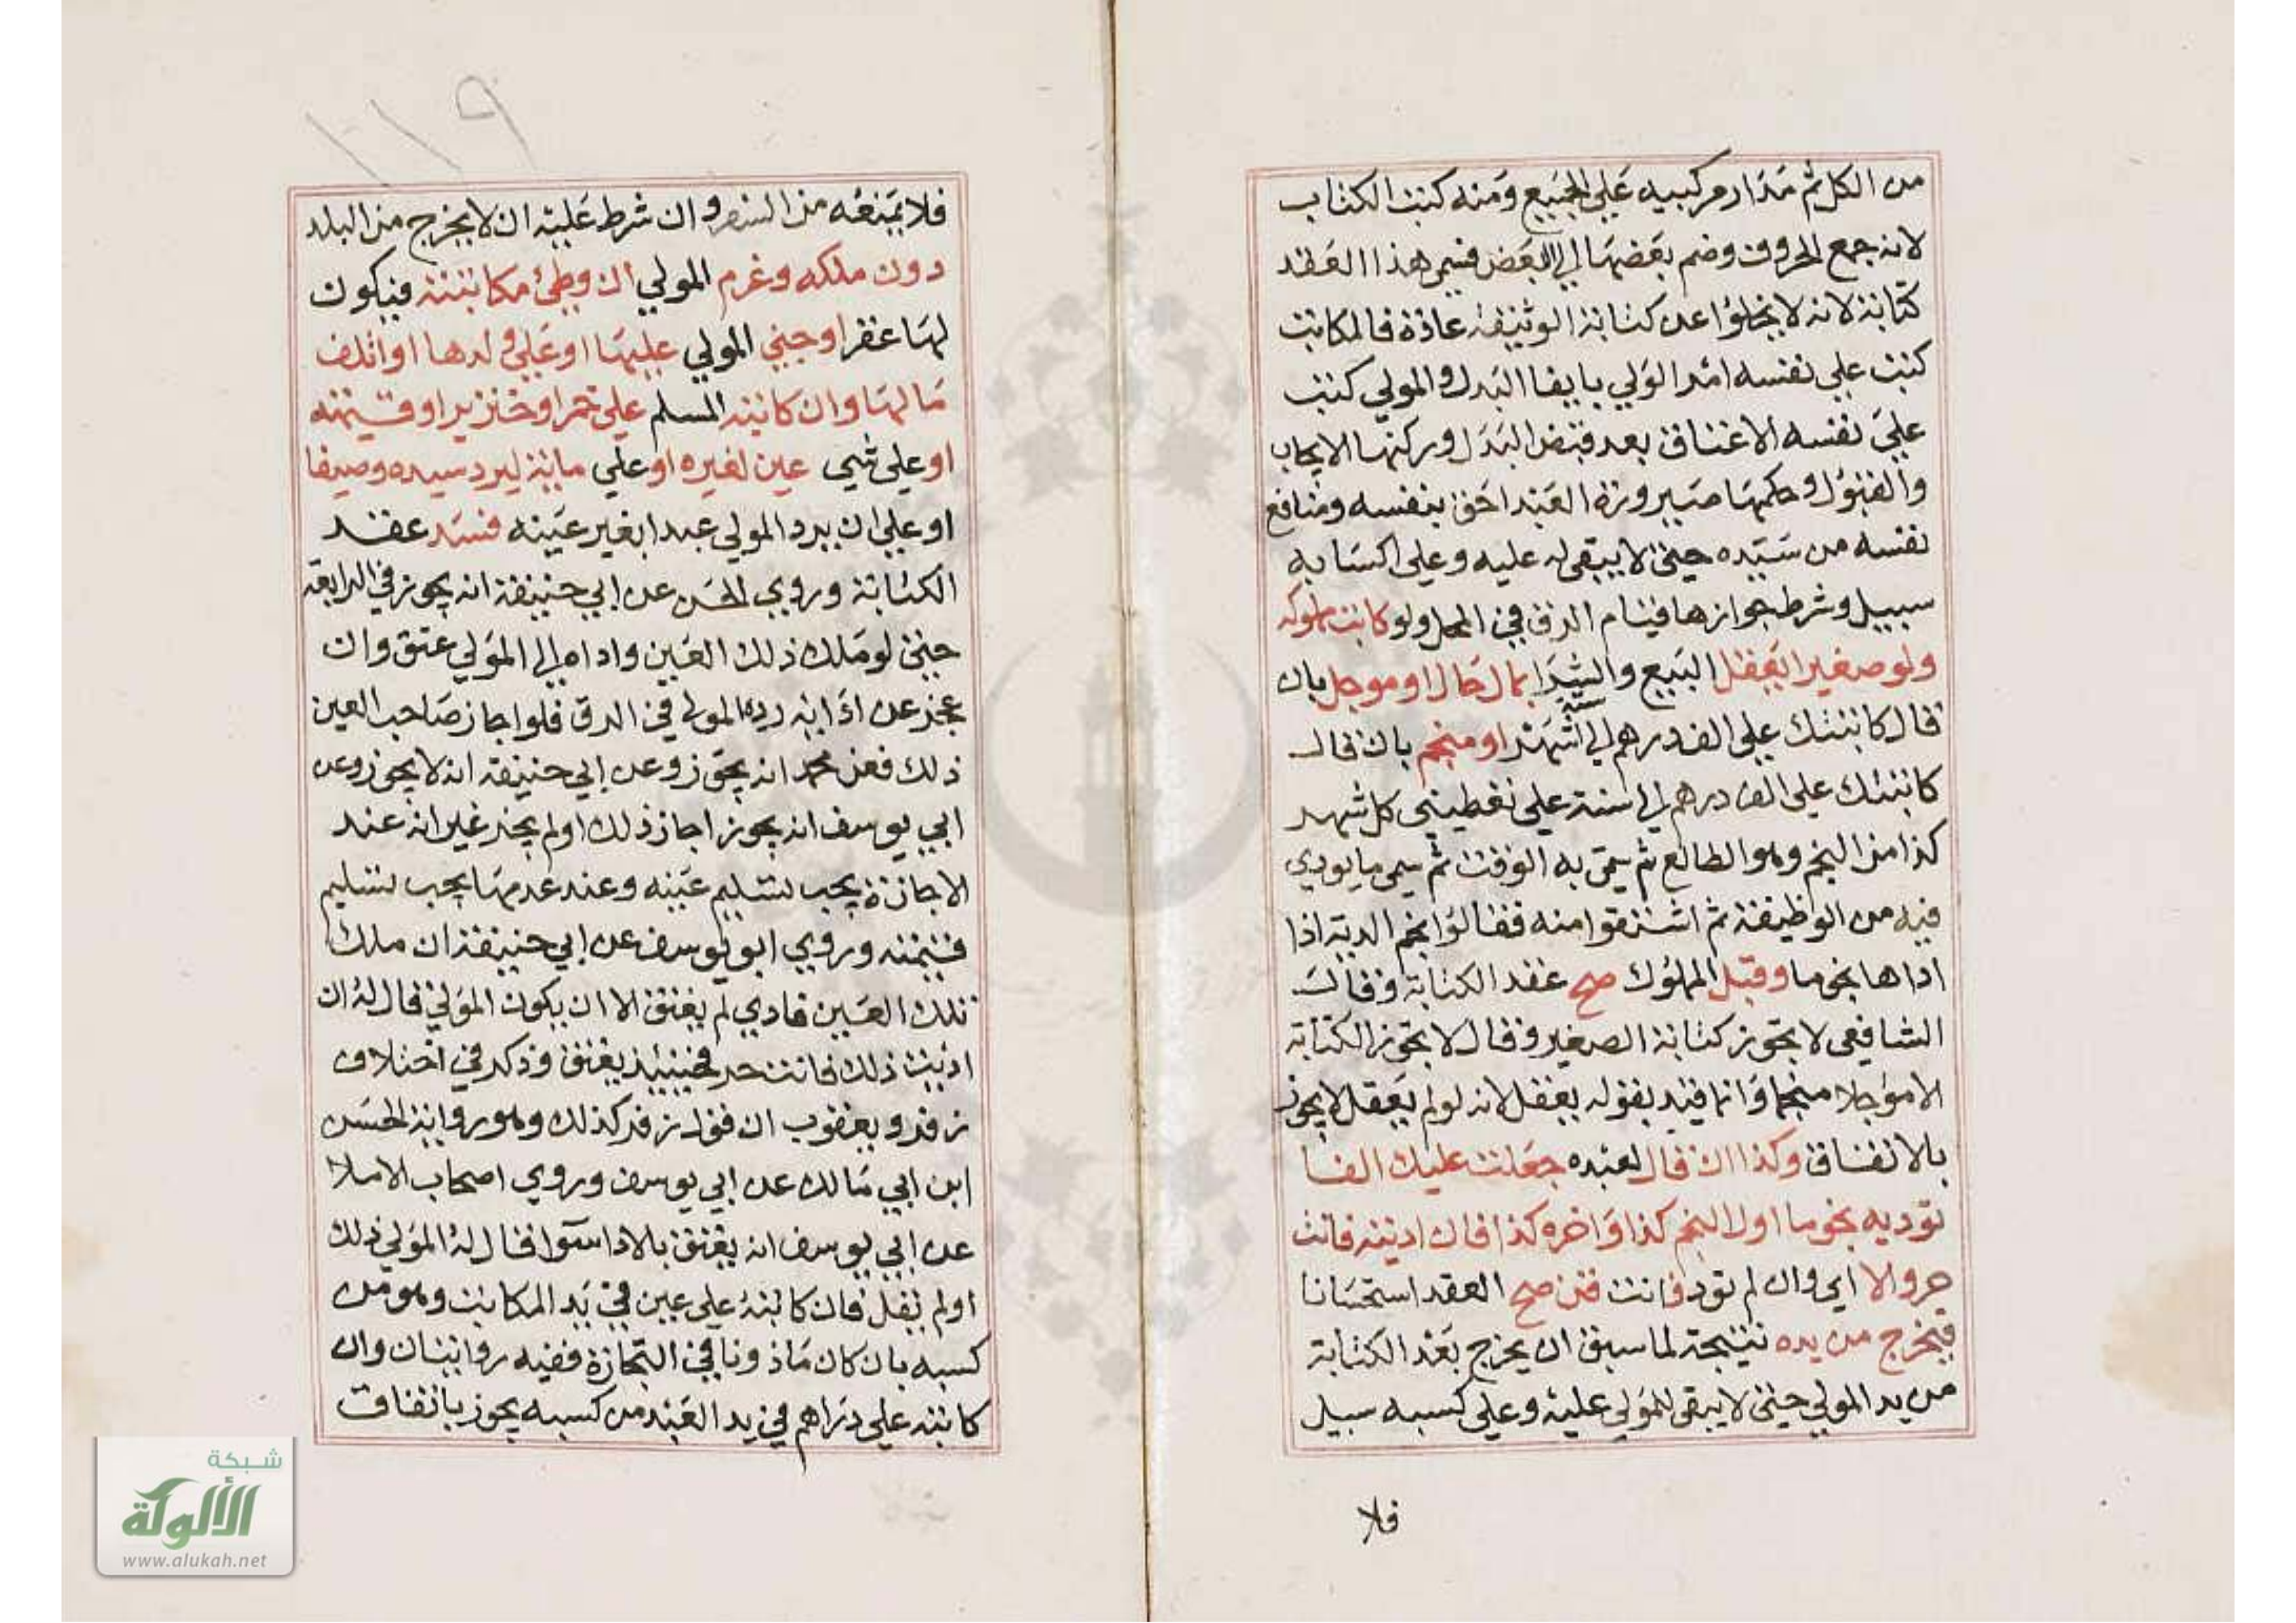 من الكل ثم مدار مركبيه علي الجميع ومنه كتب الكتاب
لانه جمع الحروف وضم بعضها الي البعض فسمي هذا العقد
كتابة لانه لا يخلوا عن كتابة الوثيقة عادة فالمكاتب
كتب علي نفسه امد الولي بايفا البدل والمولي كتب
علي نفسه الاعتاق بعد قبض البدل وركنها الايجاب
والقبول وحكمها صيرورة العبد احق بنفسه ومنافع
نفسه من سيده حيني لا يبقي له عليه وعلي اكسابه
سبيل وشرط جوازها قيام الرق في المحل ولو كاتب مملوكه
ولو صغيرا يعقل البيع والشرا بمال حال او موجل بان
قال كاتبتك علي الف درهم الي اشهر سنة او منجم بان قال
كاتبتك علي الف درهم الي سنة علي تعطيني كل شهر
كذا من النجم وهو الطالع ثم سمي به الوقت ثم سمي ما يودي
فيه من الوظيفة ثم اشتقوا منه فقالوا نجم الدية اذا
اداها نجوما وقبل المملوك صح عقد الكتابة وقال
الشافعي لا تجوز كتابة الصغير وقال لا تجوز الكتابة
الا مؤجلا منجما وانما قيد بقوله يعقل لانه لو لم يعقل لا يجوز
بالاتفاق وكذا ان قال لعبده جعلت عليك الفا
توديه نجوما اول النجم كذا واخره كذا فان اديته فانت
حر والا اي وان لم تود فانت قن صح العقد استحسانا
فيخرج من يده نتيجة لما سبق ان يخرج بعد الكتابة
من يد المولي حيني لا يبقي للمولي عليه وعلي كسبه سبيل
فلا
١١٩
فلا يمنعه من السفر وان شرط عليه ان لا يخرج من البلد
دون ملكه وغرم المولي ان وطئ مكاتبته فيكون
لها عقر او جني المولي عليها او علي ولدها او اتلف
مالها وان كاتب المسلم علي خمر او خنزير او قيمته
او علي شي عين لغيره او علي ماية ليرد سيده وصيفا
او علي ان يرد المولي عبدا بغير عينه فسد عقد
الكتابة وروي الحسن عن ابي حنيفة انه يجوز في الرابعة
حيني لو ملك ذلك العين واداه الي المولي عتق وان
عجز عن ادايه رده المولي في الرق فلو اجاز صاحب العين
ذلك فعن محمد انه يجوز وعن ابي حنيفة انه لا يجوز وعن
ابي يوسف انه يجوز اجاز ذلك او لم يجز غير انه عند
الاجازة يجب تسليم عينه وعند عدمها يجب تسليم
قيمته وروي ابو يوسف عن ابي حنيفة ان ملك
تلك العين فادي لم يعتق الا ان يكون المولي قال له ان
اديت ذلك فانت حر فحينئذ يعتق وذكر في اختلاف
زفر ويعقوب ان قول زفر كذلك وهو رواية الحسن
ابن ابي مالك عن ابي يوسف وروي اصحاب الاملا
عن ابي يوسف انه يعتق بالادا سوا قال له المولي ذلك
او لم يقل فان كاتبه علي عين في يد المكاتب وهو من
كسبه بان كان ماذونا في التجارة ففيه روايتان وان
كاتبه علي دراهم في يد العبد من كسبه يجوز باتفاق
شبكة
الألوكة
www.alukah.net